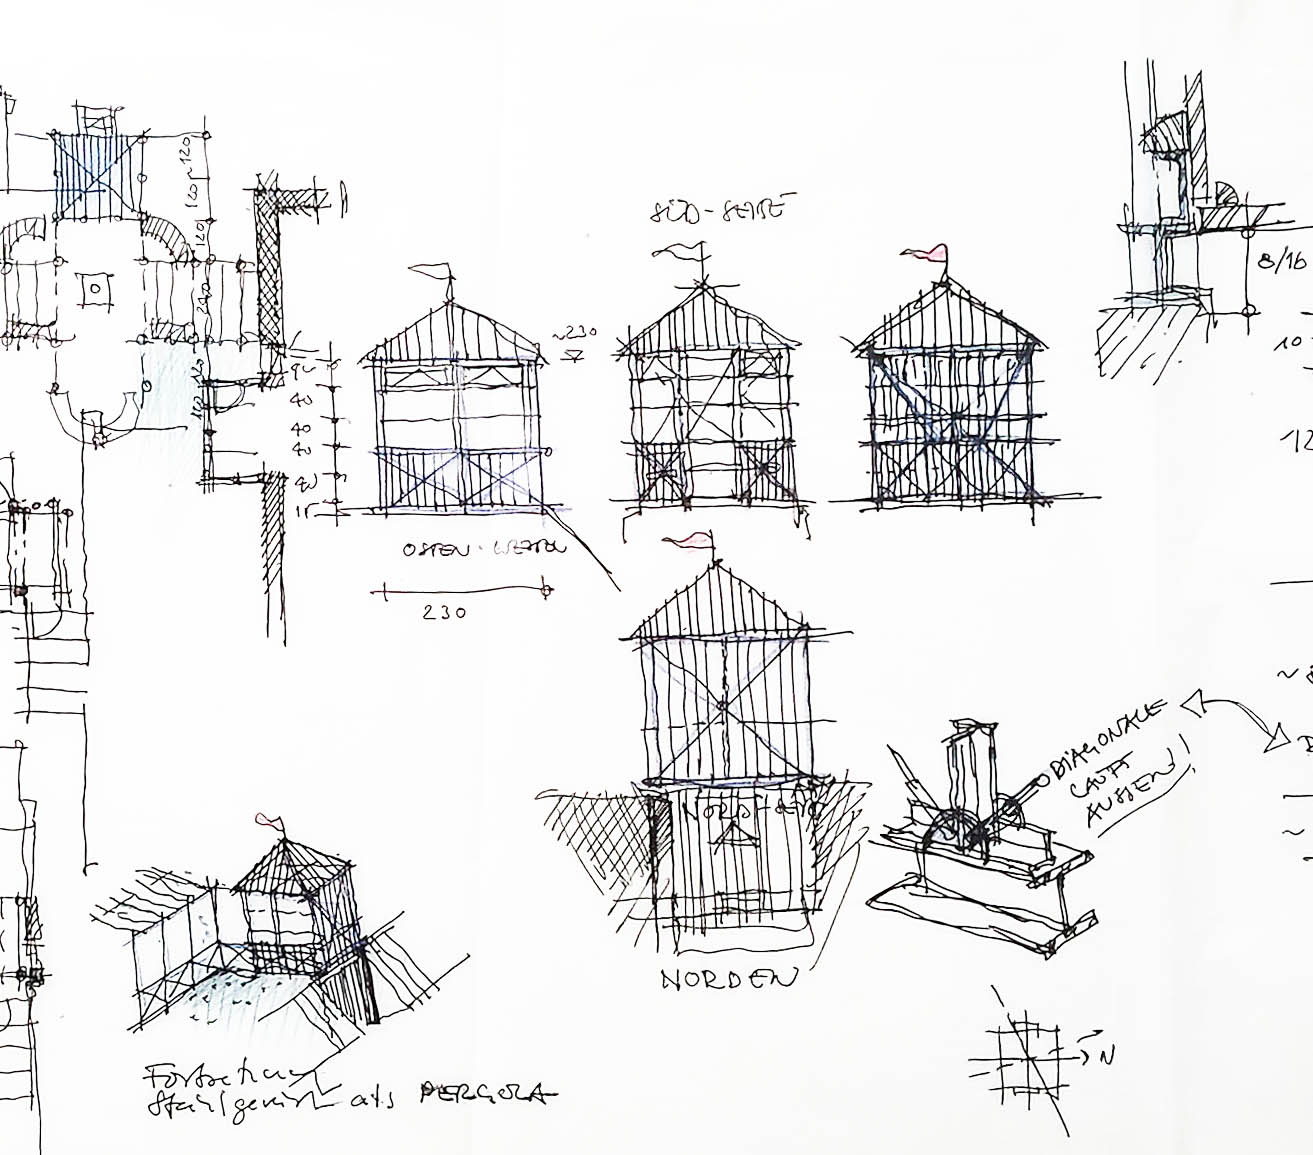 120
120
120
240
SÜD-SEITE
8/16
~230
10
40
40
40
40
15
12
OSTEN - WESTEN
230
DIAGONALE
LÄUFT
AUSSEN!
NORD-SEITE
NORDEN
N
Fortsetzung
Stahlgerüst als PERGOLA